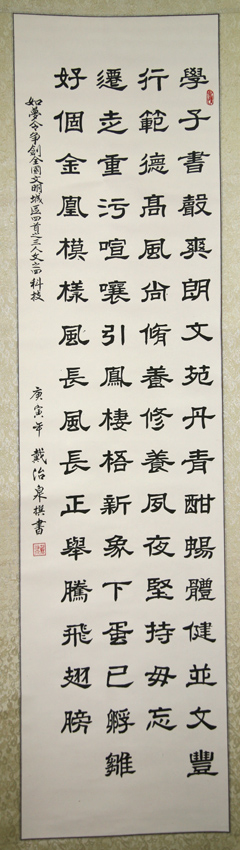 學子書聲爽朗文苑丹青酣暢體健並文豐
行範德高風尚脩養修養夙夜堅持毋忘
遷走重污喧嚷引鳳棲梧新象下蛋已孵雛
好個金凰模樣風長風長正舉騰飛翅膀
如夢令爭創全國文明城區四首之三人文 科技
庚寅年 戴治泉撰書